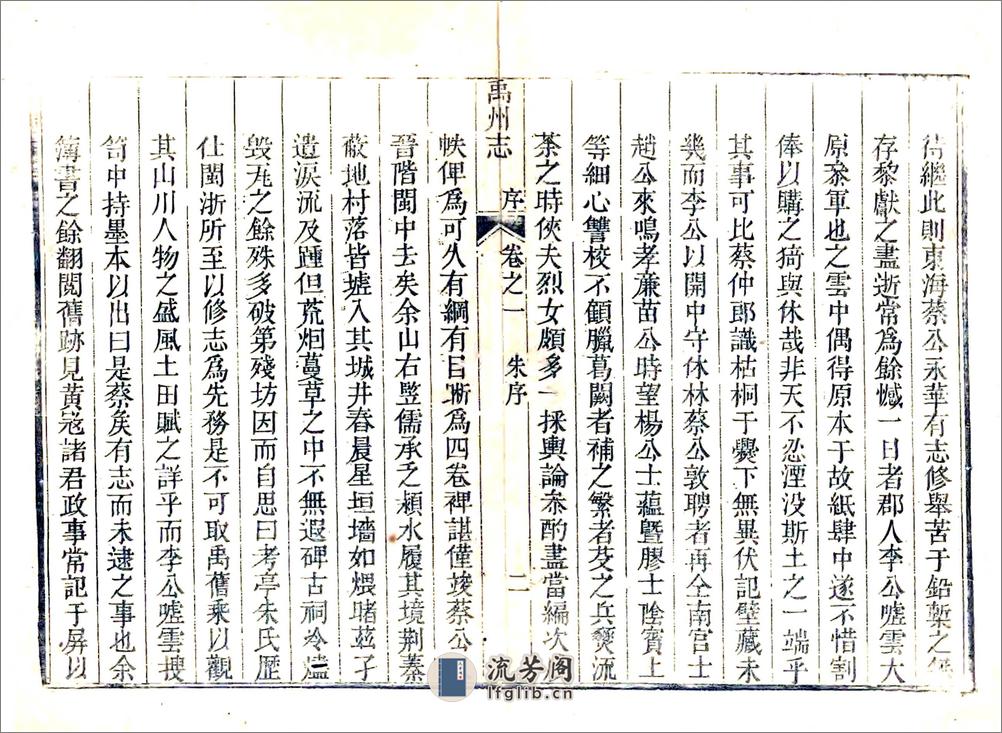 待繼此則東海蔡公永華有志修舉苦于鉛槧之無
存黎獻之盡逝常為餘憾一日者郡人李公嘘雲大
原叅軍也之雲中偶得原本于故紙肆中遂不惜割
俸以購之猗與休哉非天不忍湮没斯土之一端乎
其事可比蔡仲郎識枯桐于爨下無異伏記壁藏未
幾而李公以開中守休林蔡公敦聘者再仝南宫士
趙公來鳴孝亷苗公時望楊公士蘊曁膠士陰賓上
等細心讐校不顧臘暑闕者補之繁者芟之兵燹流
荼之時俠夫烈女頗多一採輿論叅酌盡當編次
帙俾為可久有綱有目晰為四卷禆諶僅竣蔡公
晉階閩中去矣余山右竪儒承乏潁水履其境荆蓁
蔽地村落皆墟入其城井舂晨星垣墻如煨睹兹孑
遺淚流及踵但荒烟蔓草之中不無遐碑古祠冷燼
毁瓦之餘殊多破第殘坊因而自思曰考亭朱氏歷
仕閩浙所至以修志為先務是不可取禹舊乘以觀
其山川人物之盛風土田賦之詳乎而李公嘘雲搜
笥中持墨本以出曰是蔡矦有志而未逮之事也余
簿書之餘翻閲舊跡見黄寇諸君政事常記于屏以
禹州志 序 卷之一 朱序 二
流芳阁
lfglib.cn